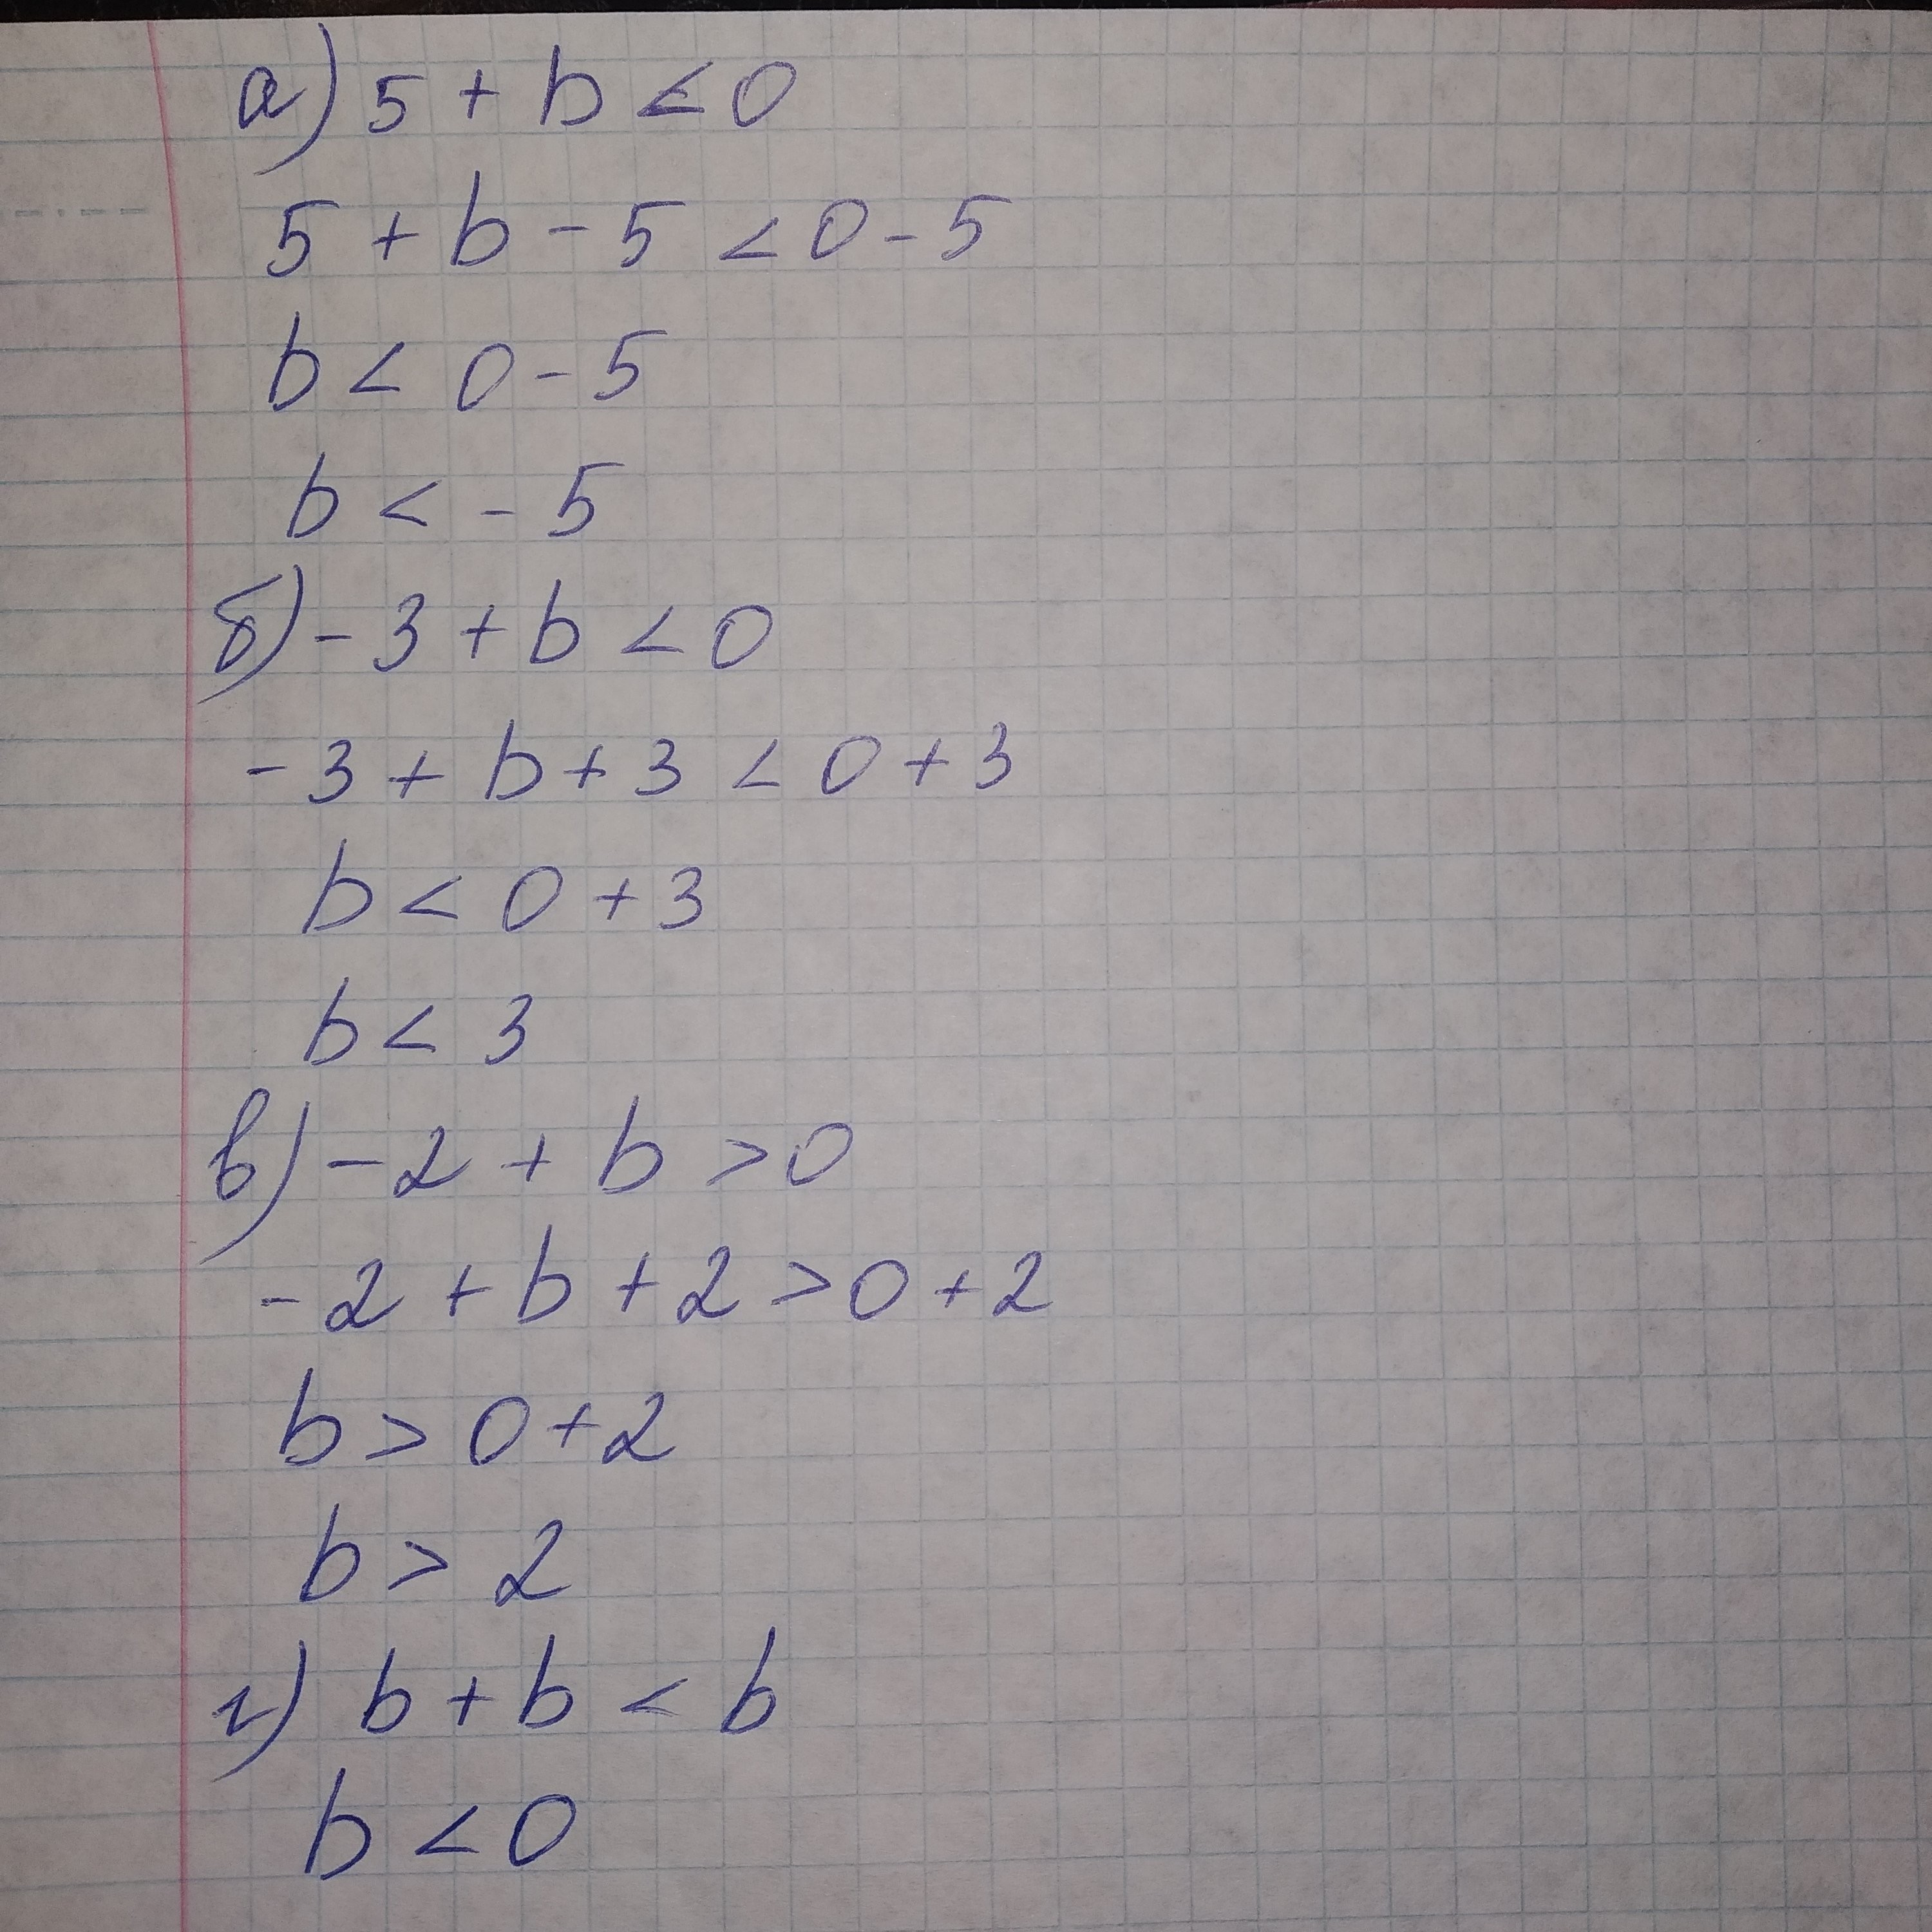 а) 5 + b < 0
5 + b - 5 < 0 - 5
b < 0 - 5
b < - 5
б) - 3 + b < 0
- 3 + b + 3 < 0 + 3
b < 0 + 3
b < 3
в) - 2 + b > 0
- 2 + b + 2 > 0 + 2
b > 0 + 2
b > 2
г) b + b < b
b < 0